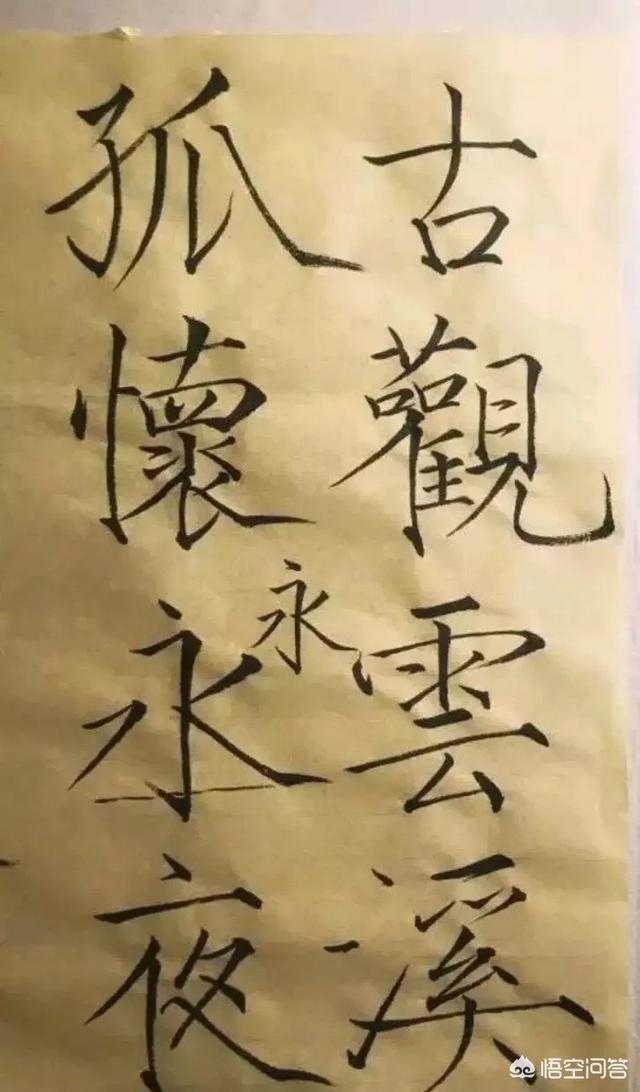 古觀雲溪
孤懷永夜
永
悟空问答